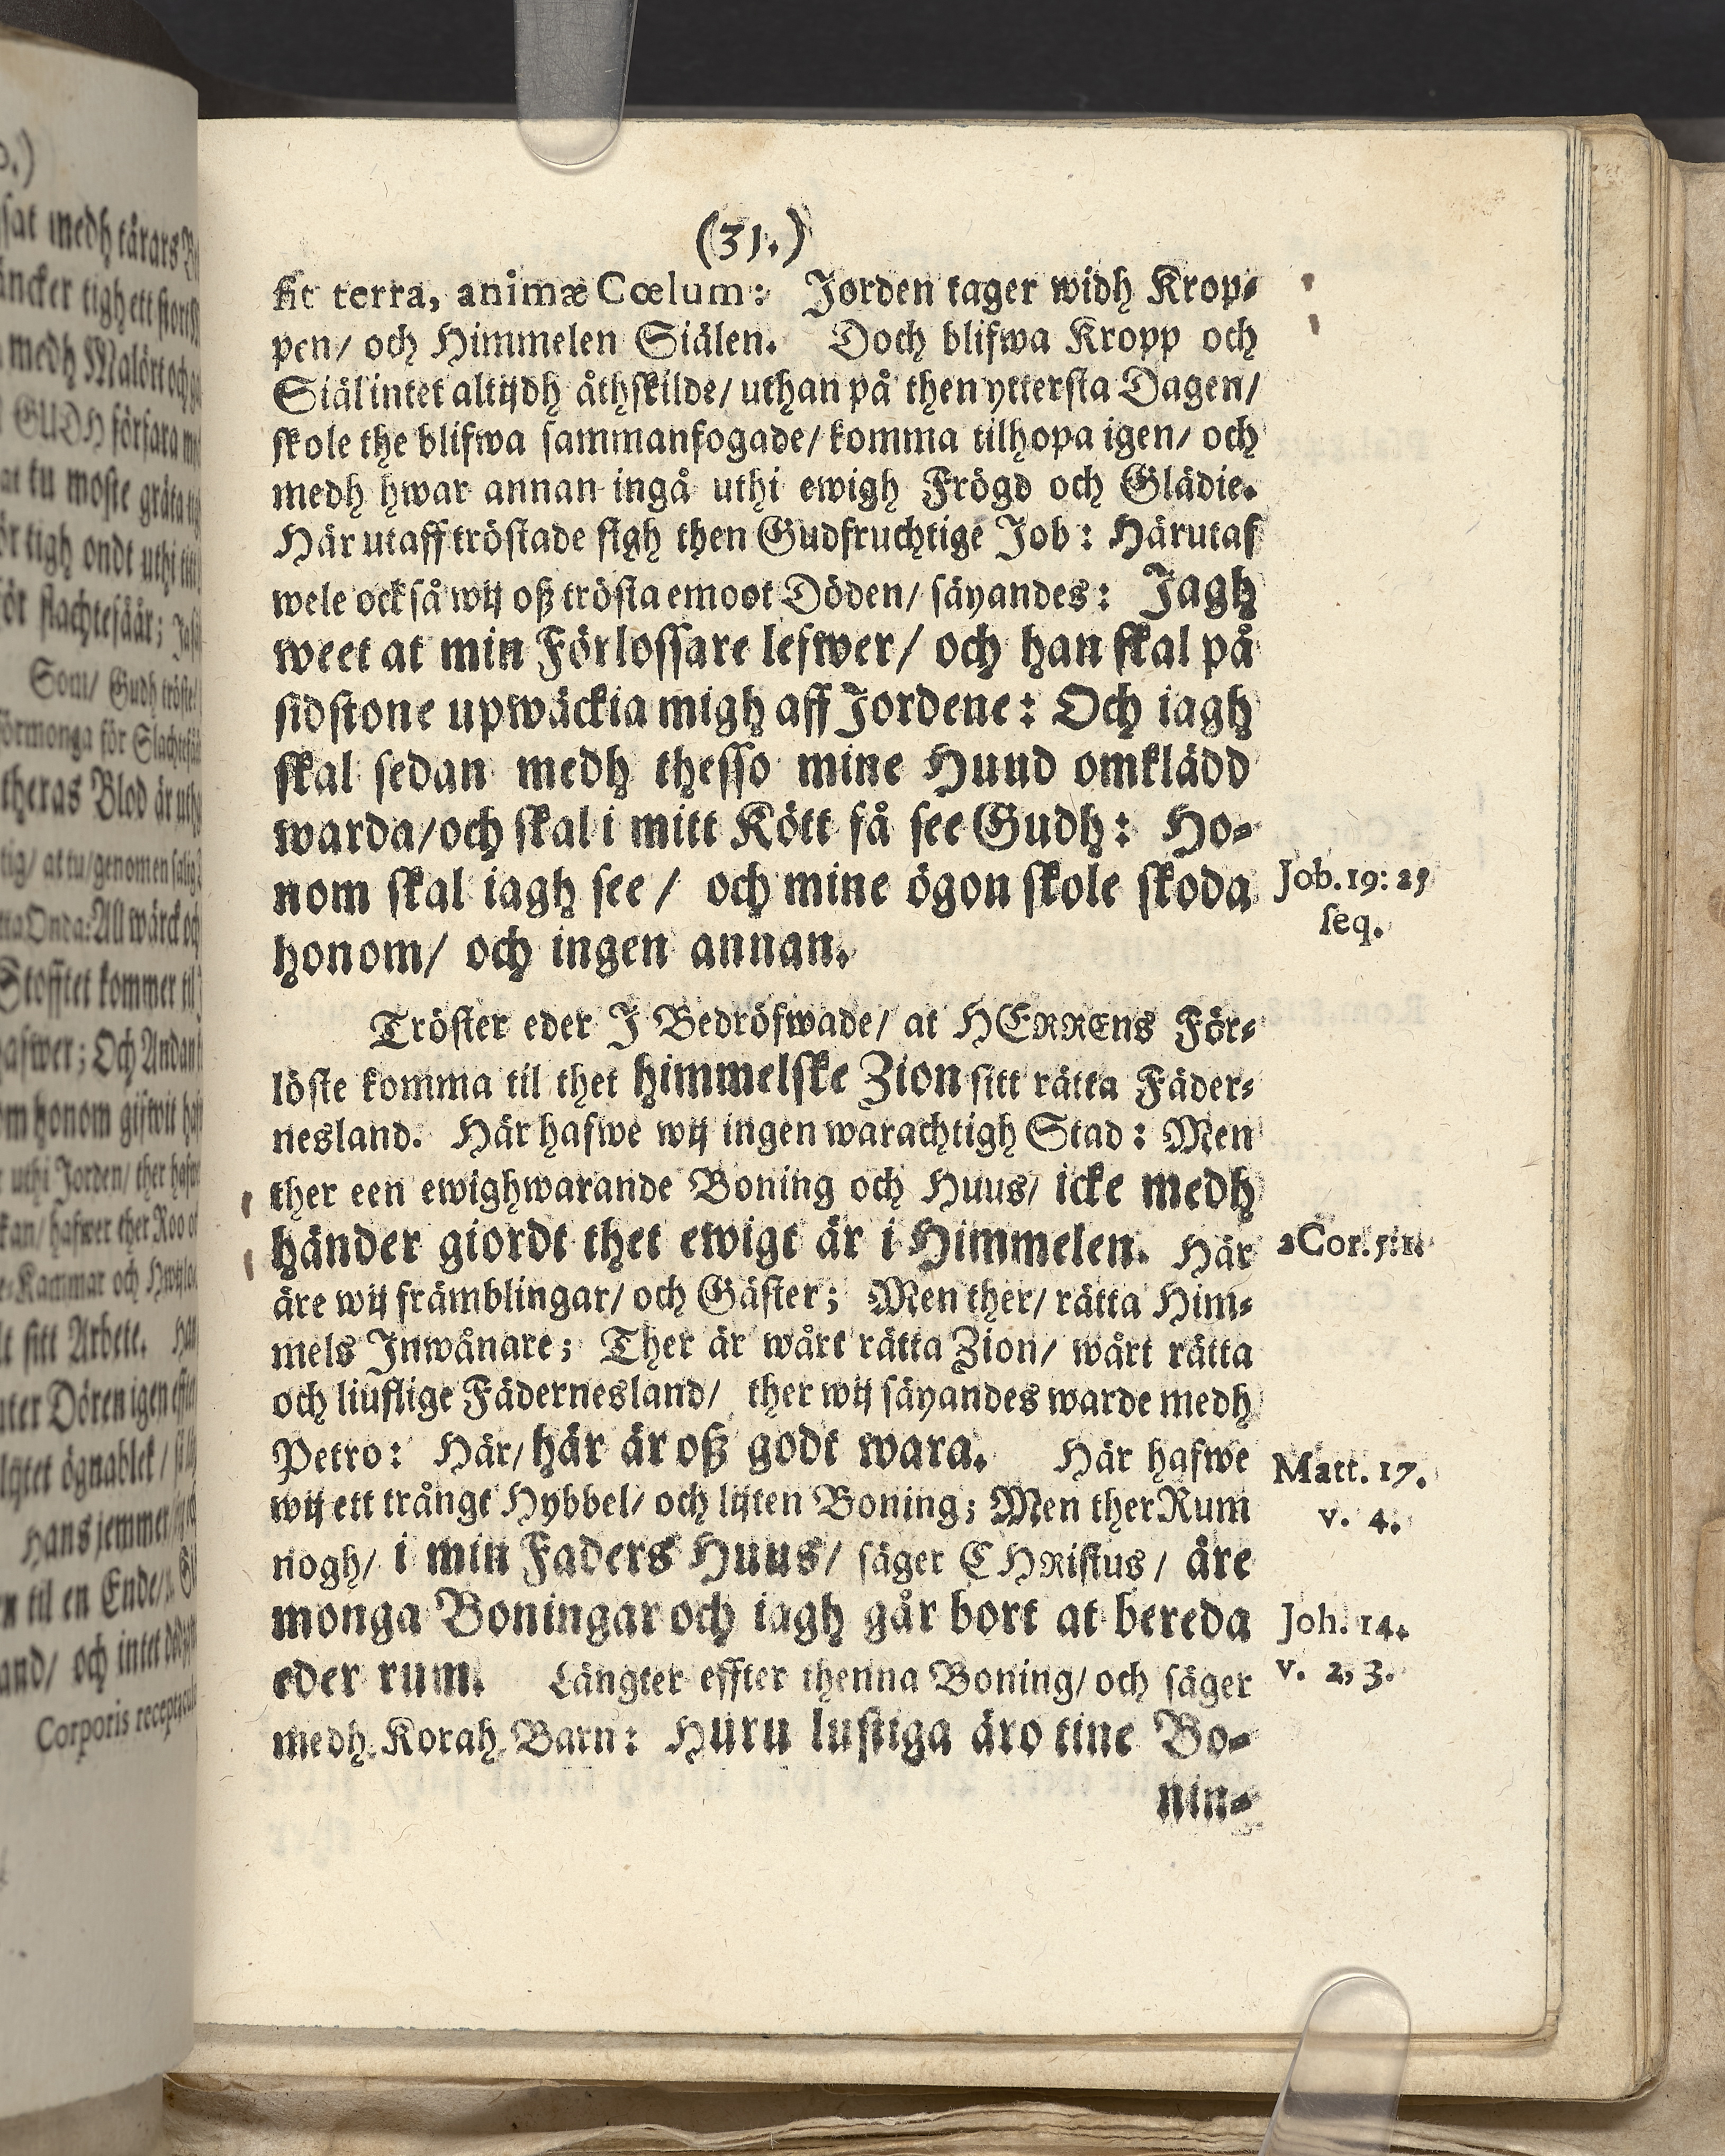 (31.)
fit terra, animæ Cœlum: Jorden tager widh Krop-
pen/ och Himmelen Siälen. Doch blifwa Kropp och
Siäl intet altijdh åthskilde/ uthan på then yttersta Dagen/
skole the blifwa sammanfogade/ komma tilhopa igen/ och
medh hwar annan ingå uthi ewigh Frögd och Glädie.
Här utaff tröstade sigh then Gudfruchtige Job: Härutaf
wele också wij oß trösta emoot Döden/ säyandes: Jagh
weet at min Förlossare lefwer/ och han skal på
sidstone upwäckia migh aff Jordene: Och iagh
skal sedan medh thesso mine Huud omklädd
warda/ och skal i mitt Kött få see Gudh: Ho-
nom skal iagh see/ och mine ögon skole skoda
honom/ och ingen annan.
Job. 19: 25
seq.
Tröster eder J Bedröfwade/ at HERRENs För-
löste komma til thet himmelske Zion sitt rätta Fäder-
nesland. Här hafwe wij ingen warachtigh Stad: Men
ther een ewighwarande Boning och Huus/ icke medh
händer giordt thet ewigt är i Himmelen. Här
2 Cor. 5: 1.
äre wij främblingar/ och Gäster; Men ther/ rätta Him-
mels Inwånare; Ther är wårt rätta Zion/ wårt rätta
och liuflige Fädernesland/ ther wij säyandes warde medh
Petro: Här/ här är oß godt wara. Här hafwe
Matt. 17.
v. 4.
wij ett trångt Hybbel/ och lijten Boning; Men ther Rum
nogh/ i min Faders Huus/ säger CHRistus/ äre
monga Boningar och iagh går bort at bereda
eder rum. Längter effter thenna Boning/ och säger
Joh. 14.
v. 2, 3.
medh Korah Barn: Huru lustiga äro tine Bo-
nin-